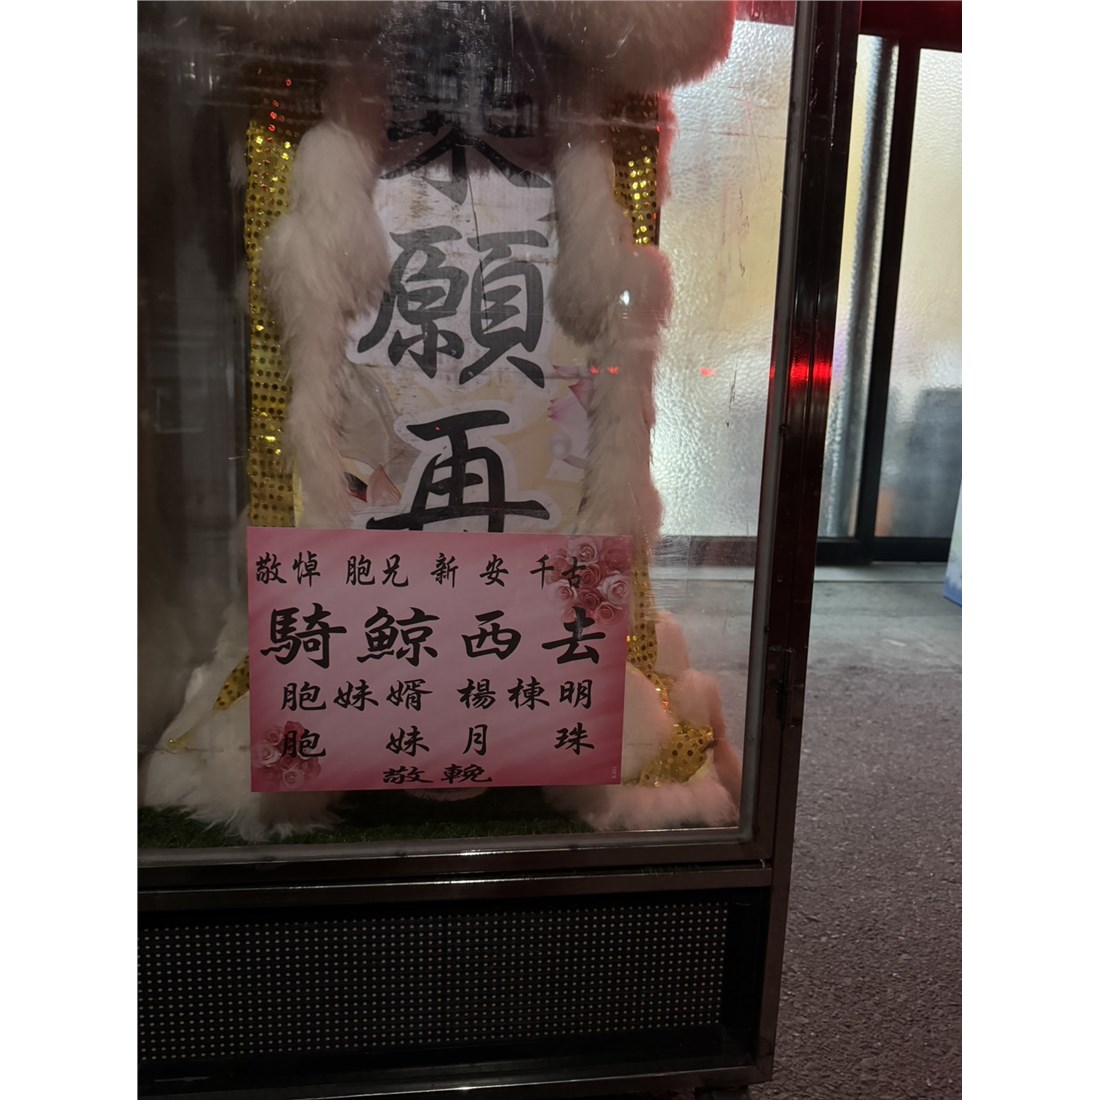 願
再
敬悼 胞兄 新安千古
騎鯨西去
胞妹婿 楊棟明
胞 妹 月 珠
敬輓